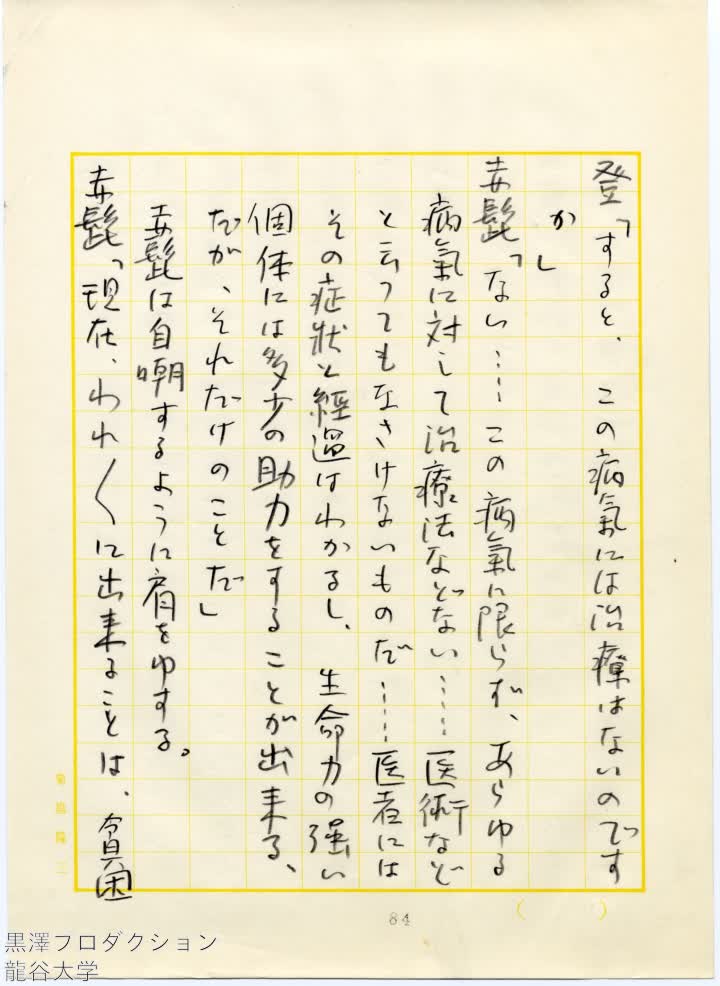 登「すると、この病氣には治療はないのです
か」
赤髭「ない……この病氣に限らず、あらゆる
病氣に対して治療法などない……医術など
と云ってもなさけないものだ……医者には
その症状と経過はわかるし、生命力の强い
個体には多少の助力をすることが出来る、
だが、それだけのことだ」
赤髭は自嘲するように肩をゆする。
赤髭「現在、われ〱に出来ることは、貧困
84
黒澤プロダクション
龍谷大学